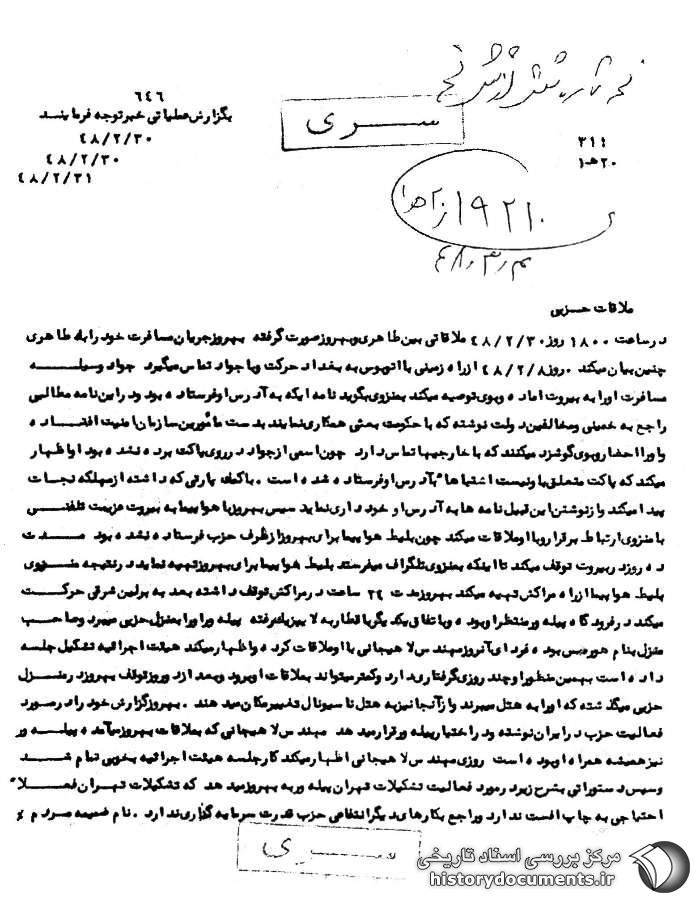 سری
۶۴۶
بگزارش عملیاتی خبر توجه فرمایند
۴۸/۲/۳۰
۴۸/۲/۳۰
۴۸/۲/۳۱
۳۱۱
۲۰ هـ ۱
۱۹۲۱۰
ملاقات حزبی
در ساعت ۱۸۰۰ روز ۴۸/۲/۳۰ ملاقاتی بین طاهری و بهروز صورت گرفته بهروز جریان مسافرت خود را به طاهری
چنین بیان میکند . روز ۴۸/۲/۸ از راه زمینی با اتوبوس به بغداد حرکت و با جواد تماس میگیرد جواد وسیله
مسافرت او را به بیروت اماده و بوی توصیه میکند بمنزوی بگوید نامه ایکه به آدرس او فرستاده بودود راین نامه مطالبی
راجع به خمینی و مخالفین دولت نوشته که با حکومت بعثی همکاری نمایند بدست مأمورین سازمان امنیت افتاده
و او را احضار و بوی گوشزد میکنند که با خارجیها تماس دارد چون اسمی از جواد در روی پاکت برده نشده بود او اظهار
میکند که پاکت متعلق باو نیست اشتباها" بآدرس او فرستاده شده است . با کمک پارتی که داشته از مهلکه نجات
پیدا میکند و از نوشتن این قبیل نامه ها به آدرس او خودداری نماید سپس بهروز با هواپیما به بیروت عزیمت تلفنی
با منزوی ارتباط برقرار و با او ملاقات میکند چون بلیط هواپیما برای بهروز از طرف حزب فرستاده نشده بود مدت
ده روز در بیروت توقف میکند تا اینکه بمنزوی تلگراف میفرستد بلیط هواپیما برای بهروز تهیه نماید در نتیجه منزوی
بلیط هواپیما از راه مراکش تهیه میکند بهروز مدت ۲۴ ساعت در مراکش توقف داشته بعد به برلین شرقی حرکت
میکند در فرودگاه پیله ور منتظر او بوده و با تفاق یکدیگر با قطار به لایپزیک رفته پیله ور او را بمنزل حزبی میبرد و صاحب
منزل بنام هورمیس بوده فردای آنروز مهندس لاهیجانی با او ملاقات کرده و اظهار میکند هیئت اجرائیه تشکیل جلسه
داده است بهمین منظور او چند روزی گرفتاری دارد و کمتر میتواند بملاقات او برود و بعد از دو روز توقف بهروز در منزل
حزبی میگذشته که او را به هتل میبرند و از آنجا نیز به هتل ناسیونال تغییر مکان میدهند . بهروز گزارش خود را در مورد
فعالیت حزب در ایران نوشته ودر اختیار پیله ور قرار میدهد مهندس لاهیجانی که بملاقات بهروز میآمده پیله ور
نیز همیشه همراه او بوده است روزی مهندس لاهیجانی اظهار میکند کار جلسه هیئت اجرائیه بخوبی تمام شد
و سپس دستوراتی بشرح زیر در مورد فعالیت تشکیلات تهران پیله ور به بهروز میدهد که تشکیلات تهران فعلا"
احتیاجی به چاپ افست ندارد و راجع بکارهای دیگر انتفاعی حزب قدرت سرمایه گذاری ندارد . نام ضمیمه مردم
سری
مرکز بررسی اسناد تاریخی
historydocuments.ir